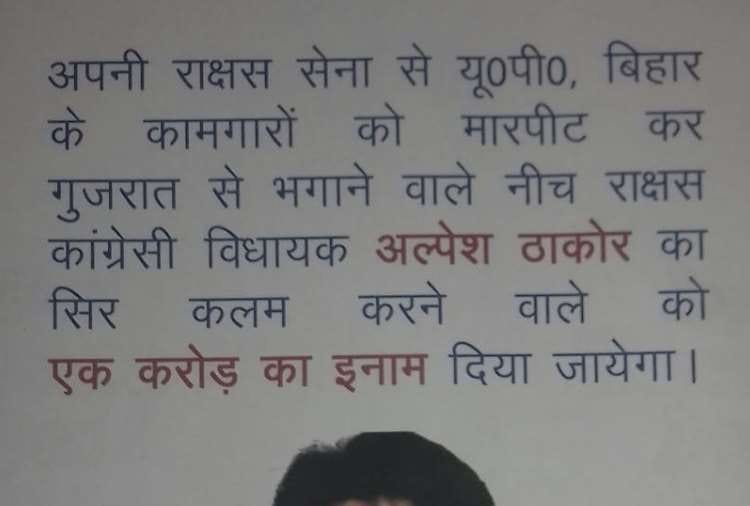 अपनी राक्षस सेना से यू0पी0, बिहार
के कामगारों को मारपीट कर
गुजरात से भगाने वाले नीच राक्षस
कांग्रेसी विधायक अल्पेश ठाकोर का
सिर कलम करने वाले को
एक करोड़ का इनाम दिया जायेगा।